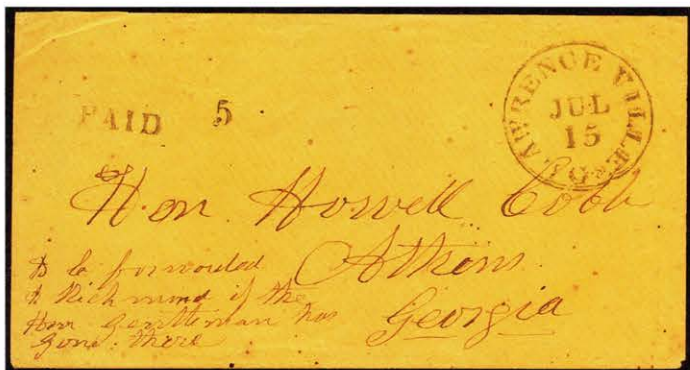 LAWRENCEVILLE Ga
JUL
15
PAID 5
Hon Howell Cobb
Athens
Georgia
to be forwarded
to Richmond if the
Hon gentleman has
gone there